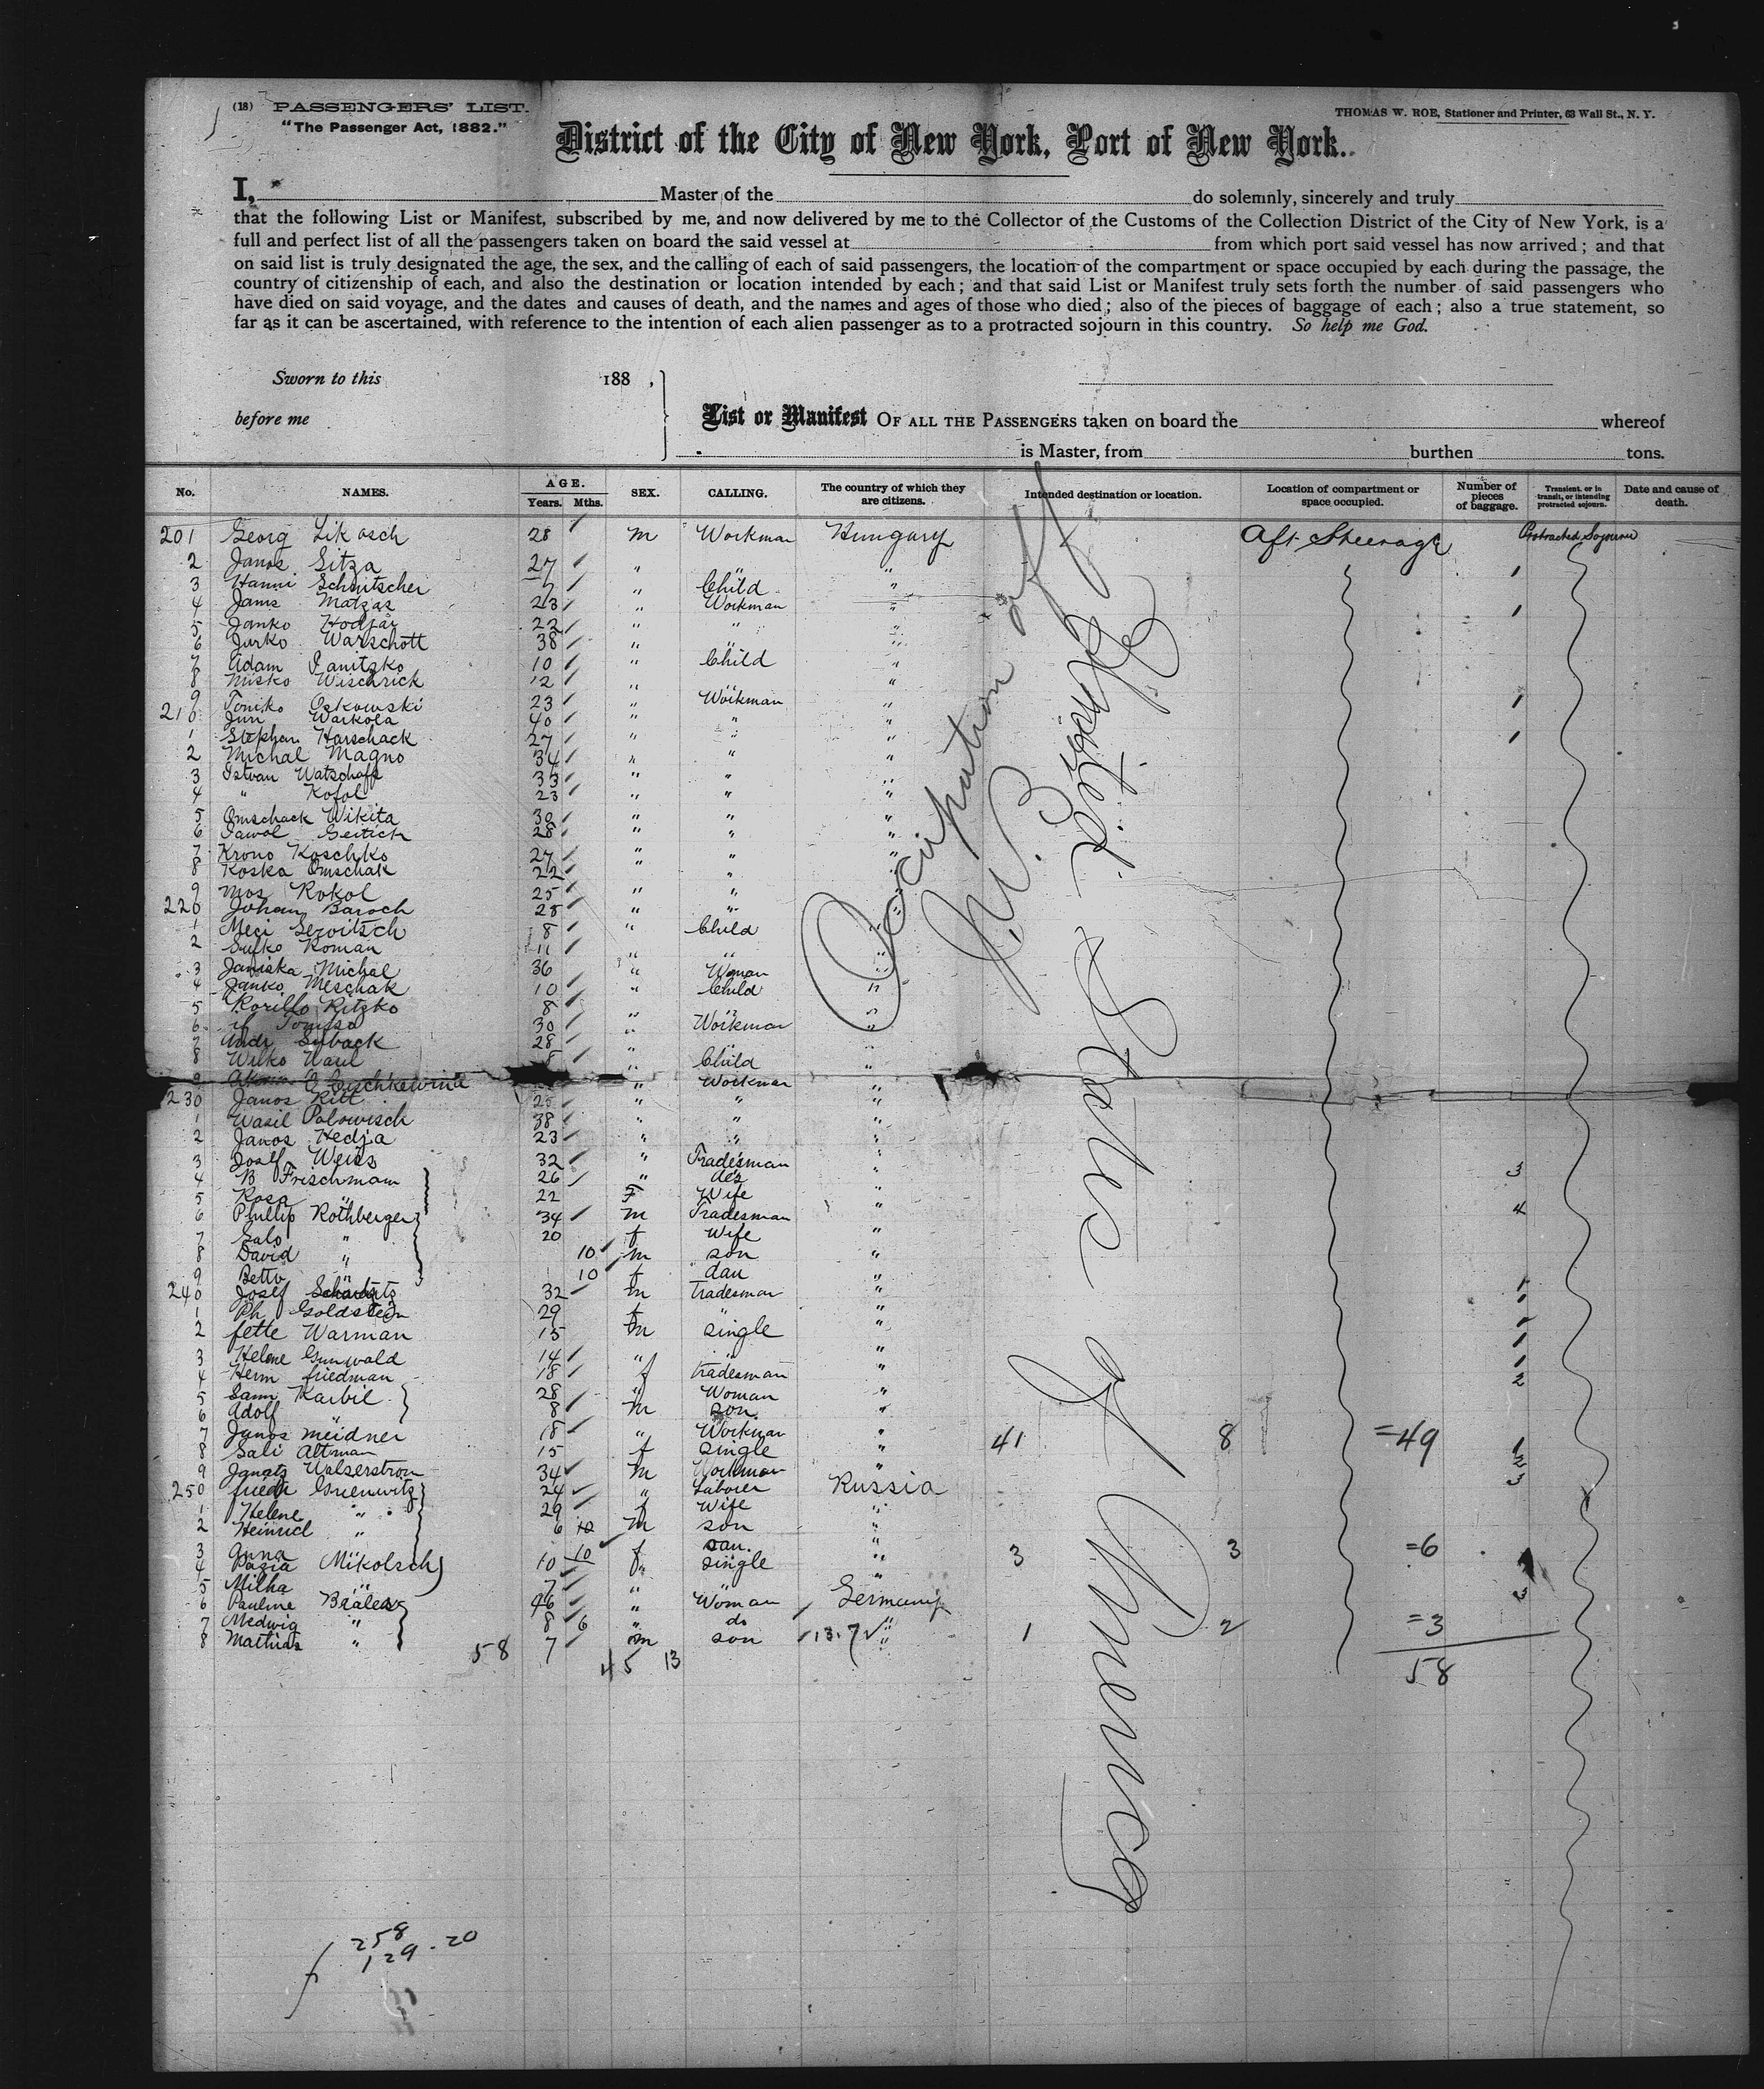 (18) PASSENGERS' LIST.
"The Passenger Act, 1882."
THOMAS W. ROE, Stationer and Printer, 63 Wall St., N. Y.
District of the City of New York, Port of New York.
I, Master of the do solemnly, sincerely and truly
that the following List or Manifest, subscribed by me, and now delivered by me to the Collector of the Customs of the Collection District of the City of New York, is a
full and perfect list of all the passengers taken on board the said vessel at from which port said vessel has now arrived; and that
on said list is truly designated the age, the sex, and the calling of each of said passengers, the location of the compartment or space occupied by each during the passage, the
country of citizenship of each, and also the destination or location intended by each; and that said List or Manifest truly sets forth the number of said passengers who
have died on said voyage, and the dates and causes of death, and the names and ages of those who died; also of the pieces of baggage of each; also a true statement, so
far as it can be ascertained, with reference to the intention of each alien passenger as to a protracted sojourn in this country. So help me God.
Sworn to this 188 ,
before me
List or Manifest OF ALL THE PASSENGERS taken on board the whereof
is Master, from burthen tons.
No. NAMES. AGE. Years. Mths. SEX. CALLING. The country of which they are citizens. Intended destination or location. Location of compartment or space occupied. Number of pieces of baggage. Transient, or in transit, or intending protracted sojourn. Date and cause of death.
201 Georg 28 m Workman Hungary Aft Steerage Protracted Sojourn
2 Janos Sitza 27 " " 1
3 Hanni Schmitscher 7 " Child "
4 Janis Matzas 23 " Workman " 1
5 Janko Hodjar 22 " " "
6 Jurko Warschott 38 " " "
7 Adam Janitzko 10 " Child "
8 Misko Wischrick 12 " " "
9 Toniko Oskowski 23 " Workman " 1
210 Jun Warkola 40 " " "
1 Stephan Harschack 27 " " " 1
2 Michal Magno 34 " " "
3 Istvan Watschaff 33 " " "
4 " Kofol 23 " " "
5 Omschack Wikita 30 " " "
6 Pawol Gertich 28 " " "
7 Krono Koschko 27 " " "
8 Koska Omschak 22 " " "
9 Mos Kokol 25 " " "
220 Johan Baroch 25 " " "
1 Meci Serwitsch 8 " Child "
2 Sufko Roman 11 " " "
3 Janiska Michal 36 " Woman "
4 Janko Meschak 10 " Child "
5 Korillo Ritzko 8 " " "
6 Tomisa 30 " Workman "
7 Andr Suback 28 " " "
8 Wilko Wasil 8 " Child "
9 " Workman "
230 Janos Ritt 25 " " "
1 Wasil Palowisch 38 " " "
2 Janos Hedja 23 " " "
3 Josef Weiss 32 " Tradesman "
4 B Frischmam 26 " do " 3
5 Rosa " 22 F Wife "
6 Phillip Rothberger 34 m Tradesman " 4
7 Salo " 20 f Wife "
8 David " 10 m son "
9 Betti " 10 f dau "
240 Josef Schwartz 32 m tradesman " 1
1 Ph Goldstein 29 f " " 1
2 fette Warman 15 m single " 1
3 Helene Grunwald 14 " " " 1
4 Herm friedman 18 f tradesman " 1
5 Sann Karbil 28 " Woman " 2
6 Adolf " 8 m son "
7 Janos Meidner 18 " Workman " 41 8 =49
8 Sali Altman 15 f single " 1
9 Janatz Walserstrom 34 m Workman " 2
250 24 " Laborer Russia 3
1 Helene " 29 f Wife "
2 Heinrich " 6 m son "
3 Anna " 10 f dau. "
4 Mikolsch 10 f single " 3 3 =6
5 Milha " 7 " " "
6 Pauline Bialess 46 " Woman Germany 3
7 Medwig " 8 6 " do "
8 Mathias " 7 m son 13.7 " 1 2 =3
58 45 13 58
Occupation of
J. W. B.
United States of America
258
129.20